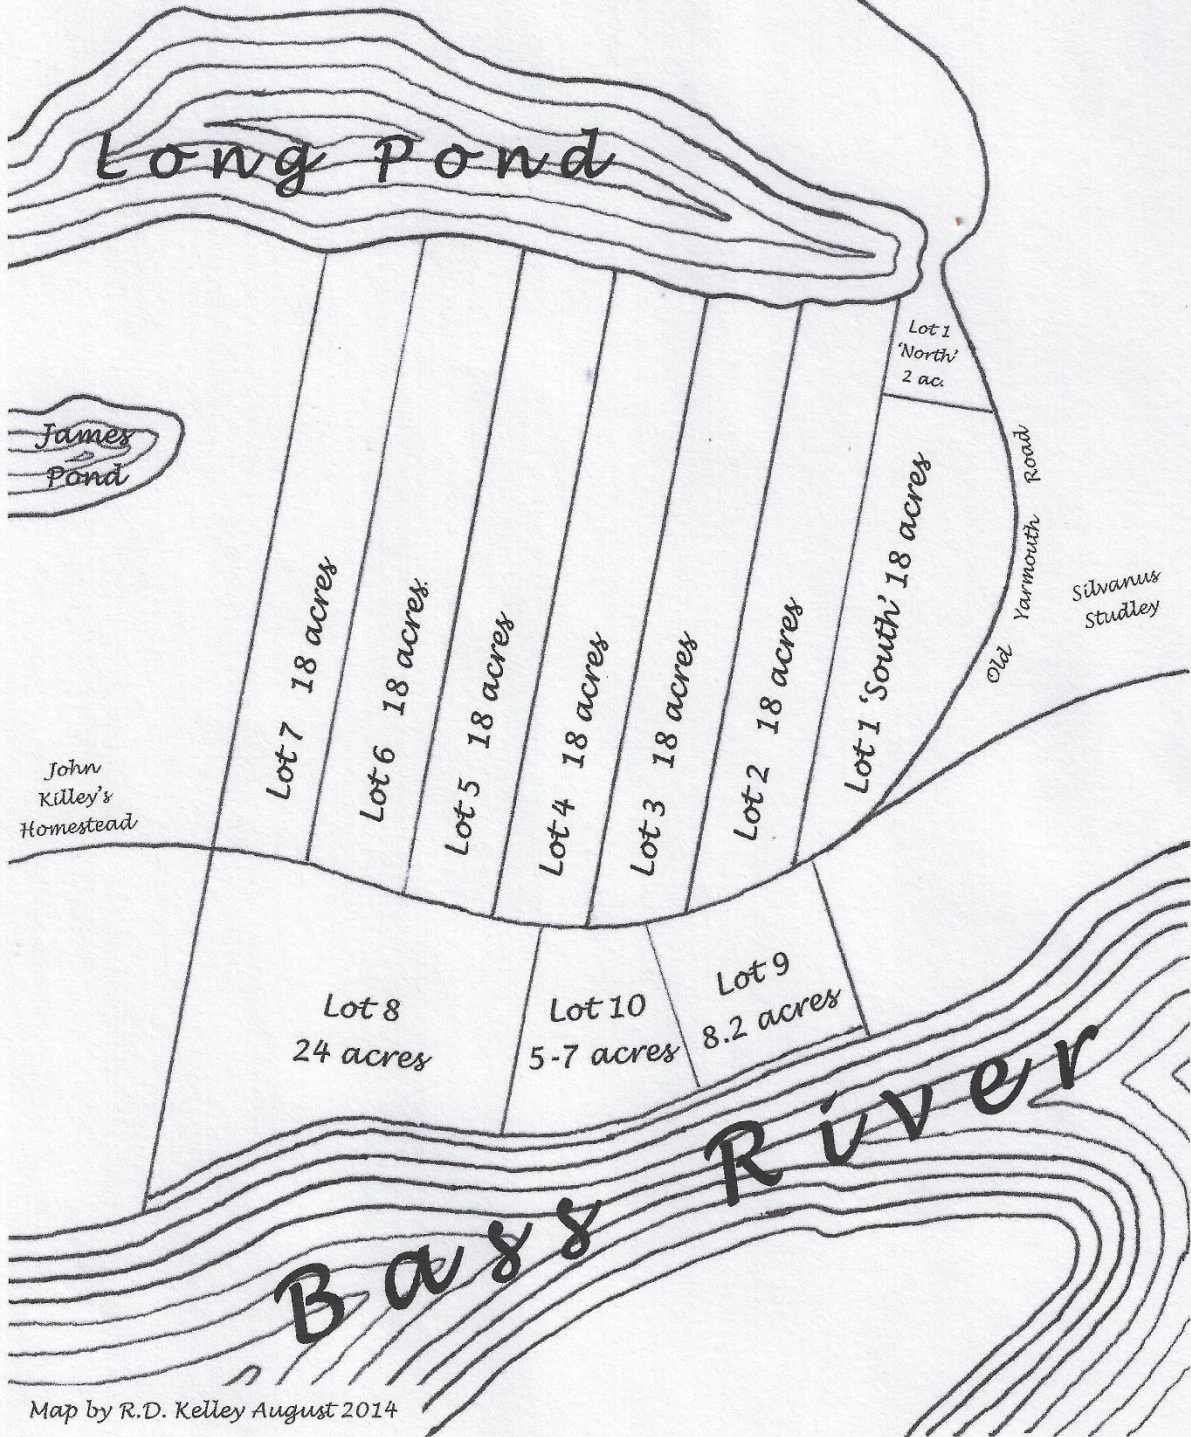 Long Pond
Lot 1
'North'
2 ac.
James
Pond
Old Yarmouth Road
Silvanus
Studley
John
Killey's
Homestead
Lot 7 18 acres
Lot 6 18 acres
Lot 5 18 acres
Lot 4 18 acres
Lot 3 18 acres
Lot 2 18 acres
Lot 1 'South' 18 acres
Lot 8
24 acres
Lot 10
5-7 acres
Lot 9
8.2 acres
Bass River
Map by R.D. Kelley August 2014